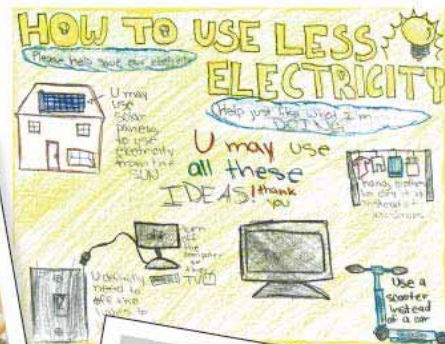 HOW TO USE LESS
ELECTRICITY
Please help save our electricity
Help just like what I'm
DOING
U may
use
solar
to use
electricity
from the
SUN
U may use
all these
IDEAS! thank
you
hang clothes
to dry it
instead of
off
turn
off
the
computer
or
the
TV
U definitly
need to
off the
lights
Use a
scooter
instead
of a car